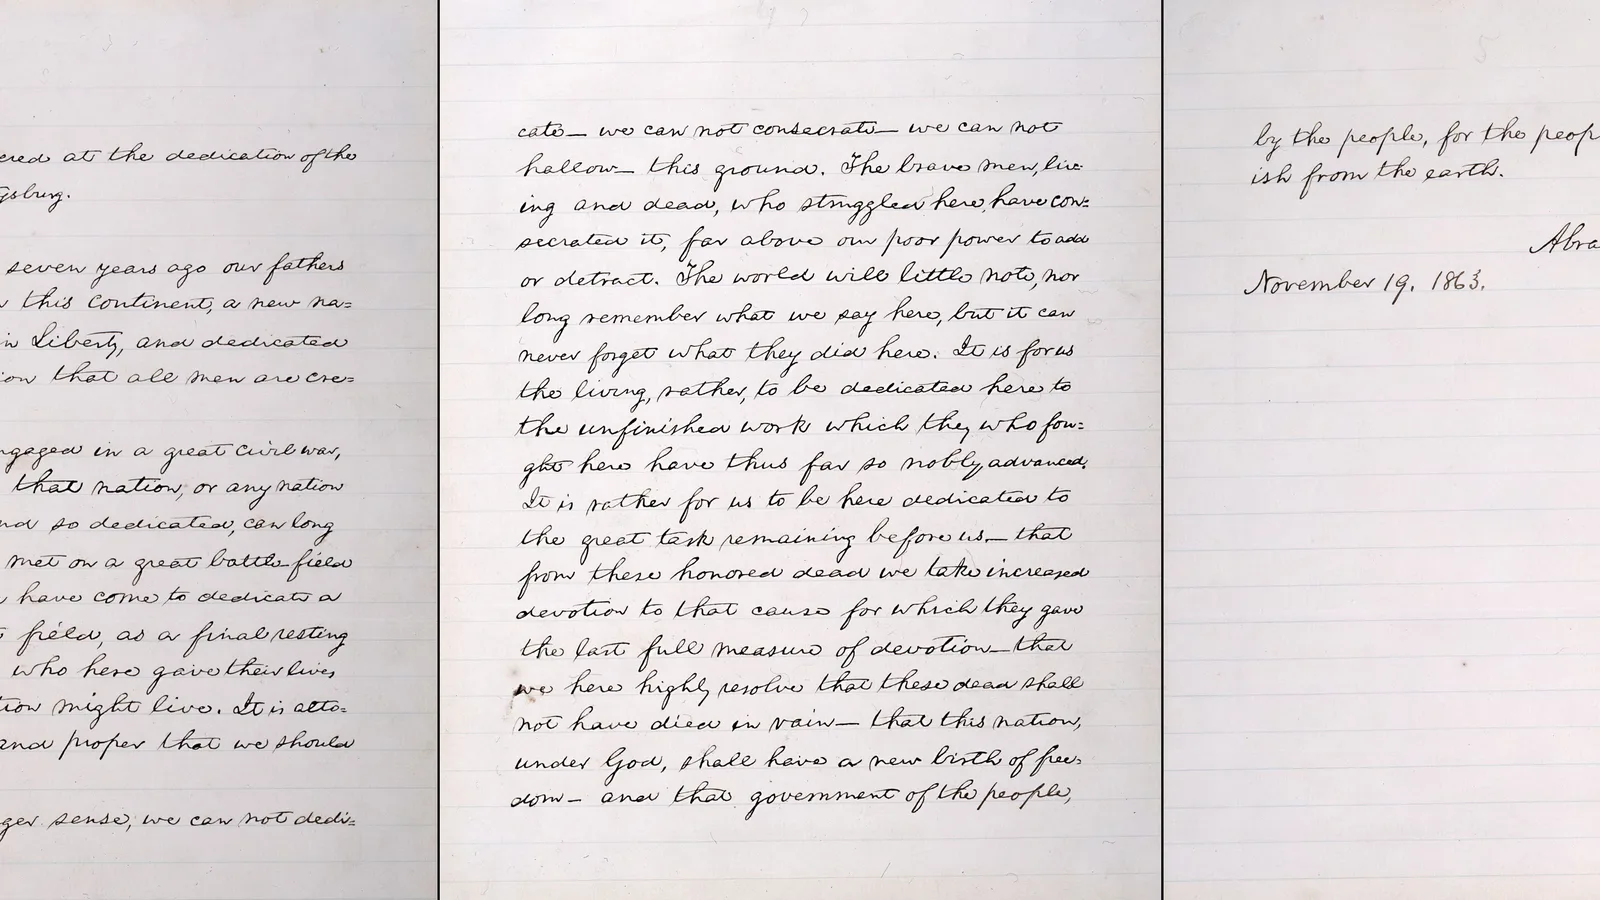 ered at the dedication of the
ysburg.
seven years ago our fathers
this continent, a new na=
in Liberty, and dedicated
ion that all men are cre=
ngaged in a great civil war,
that nation, or any nation
nd so dedicated, can long
met on a great battle-field
have come to dedicate a
field, as a final resting
who here gave their lives
tion might live. It is alto=
and proper that we should
ger sense, we can not dedi=
cate— we can not consecrate— we can not
hallow— this ground. The brave men, liv=
ing and dead, who struggled here, have con=
secrated it, far above our poor power to add
or detract. The world will little note, nor
long remember what we say here, but it can
never forget what they did here. It is for us
the living, rather, to be dedicated here to
the unfinished work which they who fou=
ght here have thus far so nobly advanced.
It is rather for us to be here dedicated to
the great task remaining before us— that
from these honored dead we take increased
devotion to that cause for which they gave
the last full measure of devotion— that
we here highly resolve that these dead shall
not have died in vain— that this nation,
under God, shall have a new birth of free=
dom— and that government of the people,
by the people, for the peop
ish from the earth.
Abra
November 19, 1863.